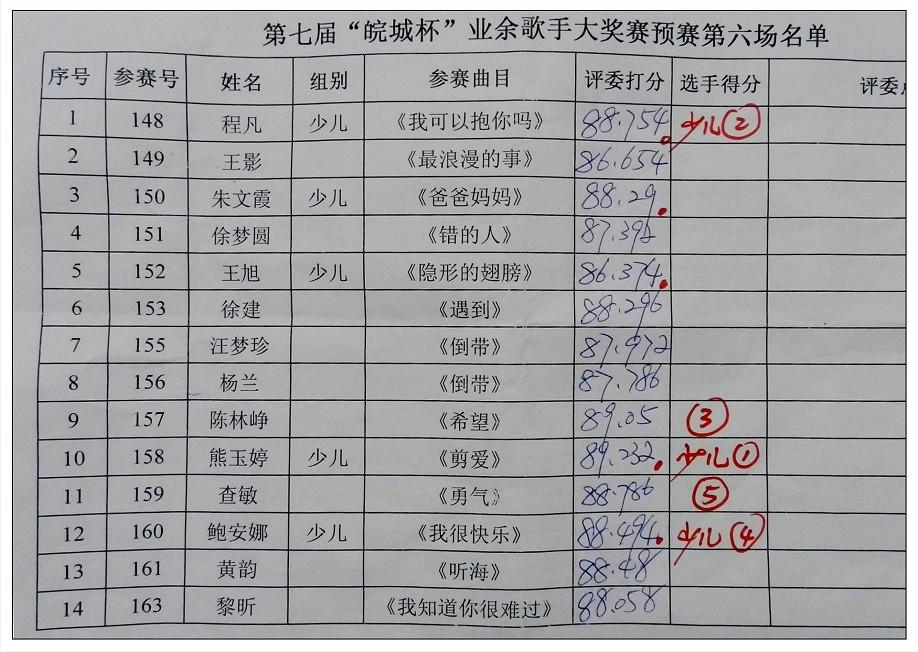 第七届“皖城杯”业余歌手大奖赛预赛第六场名单
序号 参赛号 姓名 组别 参赛曲目 评委打分 选手得分 评委
1 148 程凡 少儿 《我可以抱你吗》 88.754 少儿②
2 149 王影 《最浪漫的事》 86.654
3 150 朱文霞 少儿 《爸爸妈妈》 88.29
4 151 徐梦圆 《错的人》 87.392
5 152 王旭 少儿 《隐形的翅膀》 86.374
6 153 徐建 《遇到》 88.296
7 155 汪梦珍 《倒带》 87.972
8 156 杨兰 《倒带》 87.786
9 157 陈林峥 《希望》 89.05 ③
10 158 熊玉婷 少儿 《剪爱》 89.232 少儿①
11 159 查敏 《勇气》 88.786 ⑤
12 160 鲍安娜 少儿 《我很快乐》 88.494 少儿④
13 161 黄韵 《听海》 88.48
14 163 黎昕 《我知道你很难过》 88.058